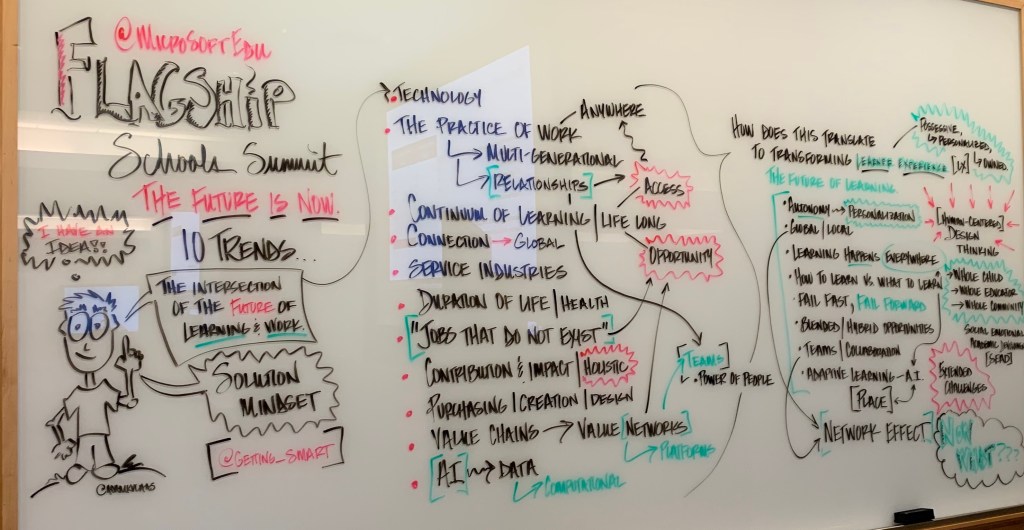 @MicrosoftEdu
Flagship
Schools Summit
The Future is Now.
I have an
idea!!
10 Trends...
The intersection
of the Future of
Learning & Work.
Solution
Mindset
@Getting_Smart
• Technology
• The Practice of Work
Anywhere
↳ Multi-generational
↳ [Relationships] → Access
• Continuum of Learning | Life Long
• Connection → Global
Opportunity
• Service Industries
• Duration of Life | Health
• ["Jobs that do not exist"]
• Contribution & Impact | Holistic
[Teams]
↳ • Power of People
• Purchasing | Creation | Design
• Value Chains → Value [Networks]
↳ Platforms
• [AI] → Data
↳ Computational
How does this translate
to transforming Learner Experience [UX]
Possessive,
↳ Personalized,
↳ Owned.
The Future of Learning
• Autonomy → Personalization
• Global | Local
[Human-centered]
Design
Thinking
• Learning happens everywhere
• How to learn vs what to learn
• Fail fast, fail forward
• Blended | Hybrid opportunities
• Teams | Collaboration
• Adaptive Learning - A.I.
[Place]
→ Whole Child
→ Whole Educator
→ Whole Community
Social Emotional
Academic
[SEAD]
Extended
Challenges
[Network Effect]
Now
What???